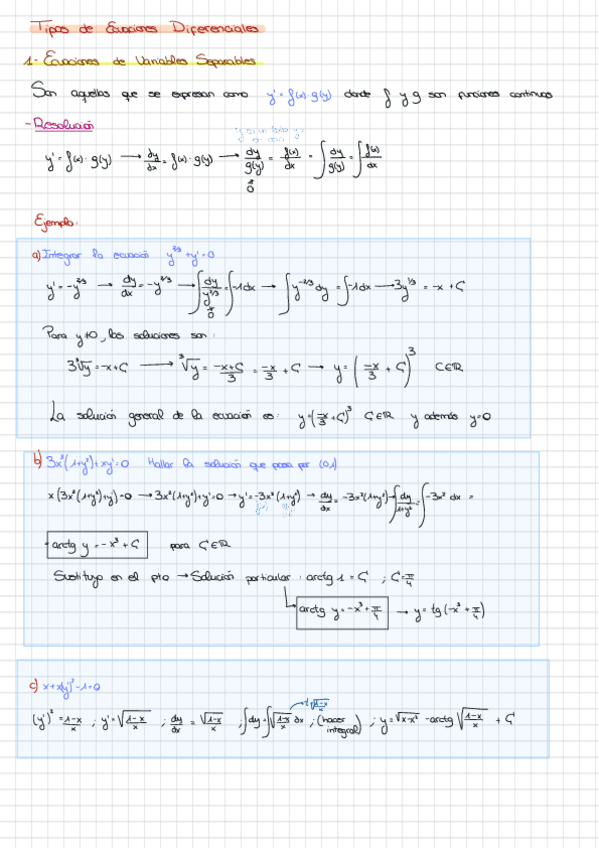 Tipos de Ecuaciones Diferenciales
1- Ecuaciones de Variables Separables
Son aquellas que se expresan como y' = f(x)·g(y) donde f y g son funciones continuas
- Resolución
y' = f(x)·g(y) → dy/dx = f(x)·g(y) → dy/g(y) = f(x)/dx = ∫ dy/g(y) = ∫ f(x)/dx
≠ 0
Ejemplo:
a) Integrar la ecuación y^2/3 + y' = 0
y' = -y^2/3 → dy/dx = -y^2/3 → ∫ dy/y^2/3 = ∫ -1dx → ∫ y^-2/3 dy = ∫ -1dx → 3y^1/3 = -x + C
≠ 0
Para y≠0, las soluciones son:
3∛y = -x + C → ∛y = (-x+C)/3 = -x/3 + C → y = (-x/3 + C)^3 C∈ℝ
La solución general de la ecuación es: y = (-x/3 + C)^3 C∈ℝ y además y=0
b) 3x^3(1+y^2)+xy'=0 Hallar la solución que pasa por (0,1)
arctg y = -x^3 + C para C∈ℝ
Sustituyo en el pto → Solución particular: arctg 1 = C ; C = π/4
arctg y = -x^3 + π/4 → y = tg(-x^3 + π/4)
c) x+x(y')^2-1=0
t = √(1-x)/x
(y')^2 = (1-x)/x ; y' = √(1-x)/x ; dy/dx = √(1-x)/x ; ∫dy = ∫√(1-x)/x dx ; (hacer integral) ; y = √x-x^2 - arctg √(1-x)/x + C